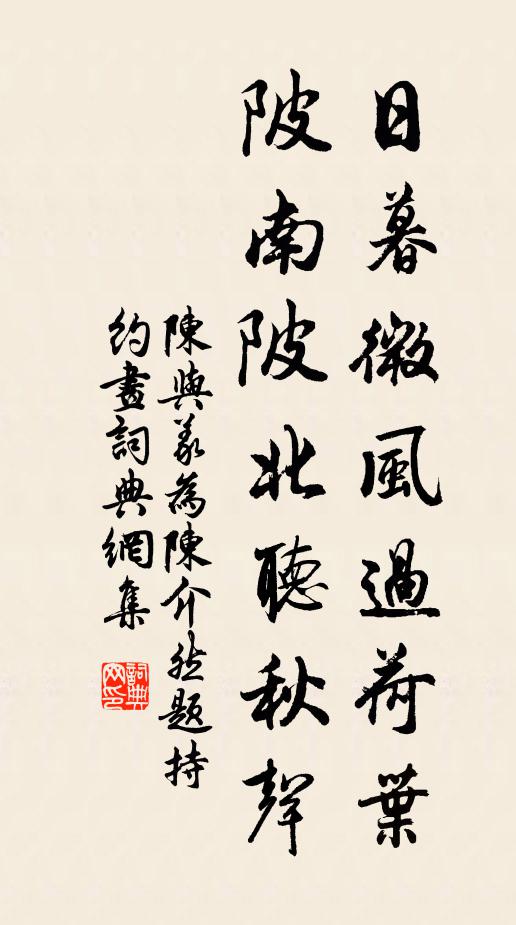 日暮微風過荷葉
陂南陂北聽秋聲
陳與義為陳介然題持
約畫詞典網集
詞典网印